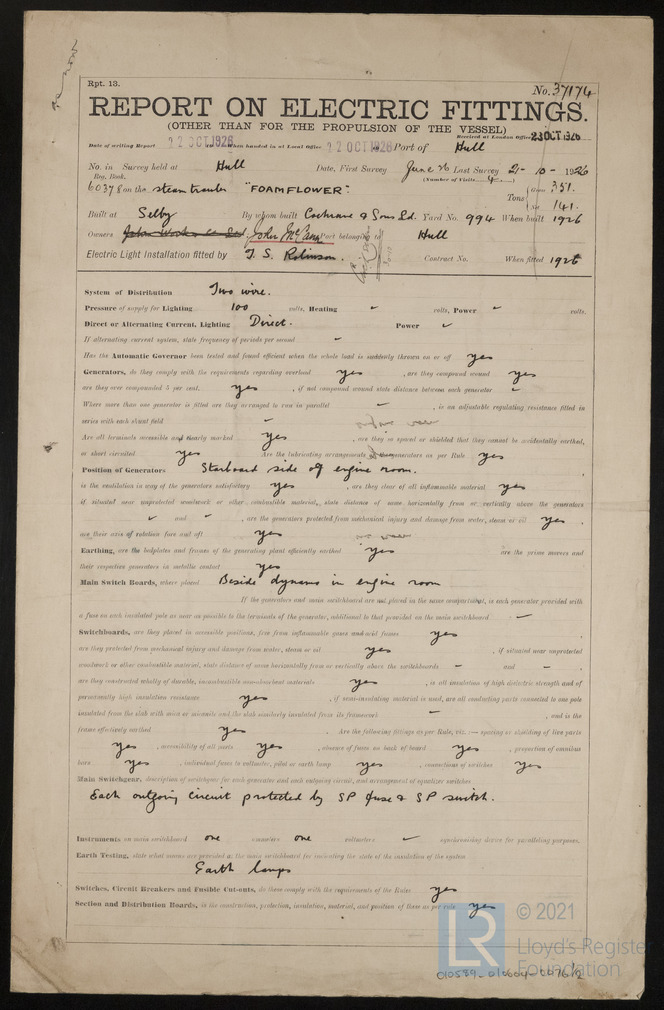 Rpt. 13.
No. 37174
REPORT ON ELECTRIC FITTINGS.
(OTHER THAN FOR THE PROPULSION OF THE VESSEL)
Received at London Office 23 OCT 1926
Date of writing Report 22 OCT 1926 When handed in at Local Office 22 OCT 1926 Port of Hull
No. in Survey held at Hull Date, First Survey June 26 Last Survey 21-10-1926
Reg. Book. (Number of Visits 4)
60378 on the steam trawler "FOAMFLOWER" Tons Gross 351.
Net 141.
Built at Selby By whom built Cochrane & Sons Ld. Yard No. 994 When built 1926
Owners John McCann Port belonging to Hull
Electric Light Installation fitted by T. S. Robinson. Contract No. When fitted 1926
System of Distribution Two wire.
Pressure of supply for Lighting 100 volts, Heating ✓ volts, Power ✓ volts.
Direct or Alternating Current, Lighting Direct. Power ✓
If alternating current system, state frequency of periods per second ✓
Has the Automatic Governor been tested and found efficient when the whole load is suddenly thrown on or off yes
Generators, do they comply with the requirements regarding overload yes , are they compound wound yes
are they over compounded 5 per cent. yes , if not compound wound state distance between each generator ✓
Where more than one generator is fitted are they arranged to run in parallel ✓ , is an adjustable regulating resistance fitted in
series with each shunt field ✓
Are all terminals accessible and clearly marked yes , are they so spaced or shielded that they cannot be accidentally earthed,
or short circuited yes Are the lubricating arrangements of the generators as per Rule yes
Position of Generators Starboard side of engine room.
is the ventilation in way of the generators satisfactory yes , are they clear of all inflammable material yes
if situated near unprotected woodwork or other combustible material, state distance of same horizontally from or vertically above the generators
✓ and ✓ , are the generators protected from mechanical injury and damage from water, steam or oil yes .
are their axis of rotation fore and aft yes
Earthing, are the bedplates and frames of the generating plant efficiently earthed yes are the prime movers and
their respective generators in metallic contact yes
Main Switch Boards, where placed Beside dynamo in engine room
If the generators and main switchboard are not placed in the same compartment, is each generator provided with
a fuse on each insulated pole as near as possible to the terminals of the generator, additional to that provided on the main switchboard ✓
Switchboards, are they placed in accessible positions, free from inflammable gases and acid fumes yes
are they protected from mechanical injury and damage from water, steam or oil yes , if situated near unprotected
woodwork or other combustible material, state distance of same horizontally from or vertically above the switchboards ✓ and ✓ ,
are they constructed wholly of durable, incombustible non-absorbent materials yes , is all insulation of high dielectric strength and of
permanently high insulation resistance yes , if semi-insulating material is used, are all conducting parts connected to one pole
insulated from the slab with mica or micanite and the slab similarly insulated from its framework ✓ , and is the
frame effectively earthed yes . Are the following fittings as per Rule, viz.:— spacing or shielding of live parts
yes , accessibility of all parts yes , absence of fuses on back of board yes , proportion of omnibus
bars yes , individual fuses to voltmeter, pilot or earth lamp yes , connections of switches yes
Main Switchgear, description of switchgear for each generator and each outgoing circuit, and arrangement of equalizer switches
Each outgoing circuit protected by SP fuse & SP switch.
Instruments on main switchboard one ammeters one voltmeters ✓ synchronising device for paralleling purposes.
Earth Testing, state what means are provided at the main switchboard for indicating the state of the insulation of the system
Earth lamps
Switches, Circuit Breakers and Fusible Cut-outs, do these comply with the requirements of the Rules yes
Section and Distribution Boards, is the construction, protection, insulation, material, and position of these as per rule yes
LR
© 2021
Lloyd's Register
Foundation